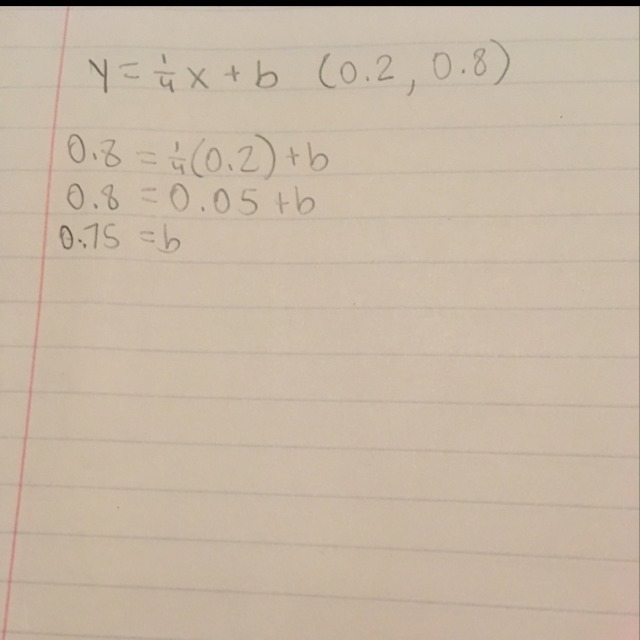 y = 1/4 x + b (0.2, 0.8)
0.8 = 1/4(0.2) + b
0.8 = 0.05 + b
0.75 = b